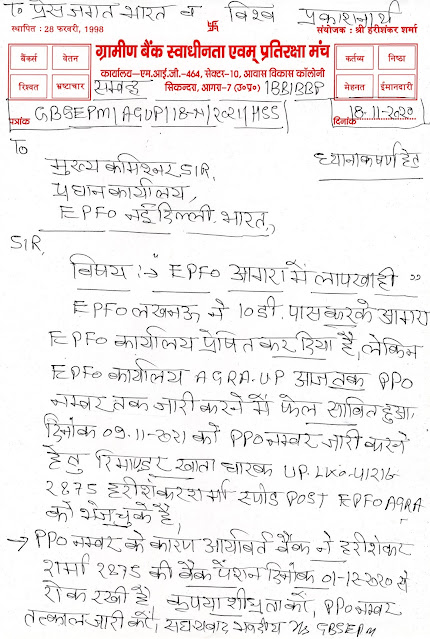 To प्रेस जगत भारत व विश्व प्रकाशनार्थ
स्थापित : 28 फरवरी, 1998
संयोजक : श्री हरीशंकर शर्मा
ग्रामीण बैंक स्वाधीनता एवम् प्रतिरक्षा मंच
बैंकर्स वेतन
रिश्वत भ्रष्टाचार
कार्यालय–एम.आई.जी.-464, सेक्टर-10, आवास विकास कॉलोनी
सिकन्दरा, आगरा-7 (उ०प्र०)
कर्तव्य निष्ठा
मेहनत ईमानदारी
सम्बन्द्ध IBBIBBP
पत्रांक GBSEPM/AGUP/18-N/2021/HSS दिनांक 18-11-2020
To
ध्यानाकर्षण हेतु
मुख्य कमिश्नर SIR,
प्रधान कार्यालय,
EPFO नई दिल्ली भारत,
SIR,
विषय :-> EPFO आगरा में लापरवाही "
EPFO लखनऊ ने 10 डी. पास करके आगरा
EPFO कार्यालय प्रेषित कर दिया है, लेकिन
EPFO कार्यालय AGRA.UP आज तक PPO
नम्बर तक जारी करने में फेल साबित हुआ
दिनांक 09.11-2021 को PPO नम्बर जारी करने
हेतु रिमाण्डर खाता धारक UP.LKO.
2875 हरीशंकर शर्मा स्पीड POST EPFO AGRA
को भेज चुके है,
→ PPO नम्बर के कारण आर्यावर्त बैंक ने हरीशंकर
शर्मा 2875 की बैंक पेंशन दिनांक 01-12-2020 से
रोक रखी है कृपया शीघ्रता करें, PPO नम्बर
तत्काल जारी करें, सधन्यवाद भवदीय GBSEPM